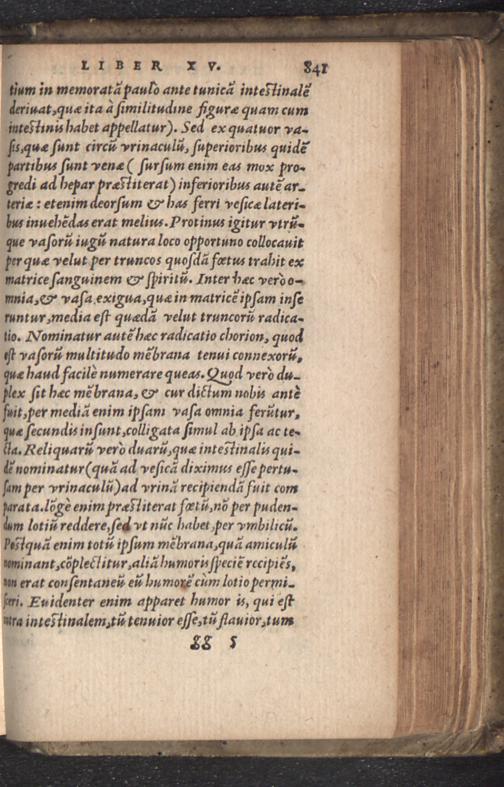 LIBER XV. 841
tium in memoratā paulo ante tunicā intestinalē
deriuat, quæ ita à similitudine figuræ quam cum
intestinis habet appellatur). Sed ex quatuor va-
sis, quæ sunt circū vrinaculū, superioribus quidē
partibus sunt venæ ( sursum enim eas mox pro-
gredi ad hepar præstiterat) inferioribus autē ar-
teriæ: etenim deorsum & has ferri vesicæ lateri-
bus inuehēdas erat melius. Protinus igitur vtrū-
que vasorū iugū natura loco opportuno collocauit
per quæ velut per truncos quosdā fœtus trahit ex
matrice sanguinem & spiritū. Inter hæc vero o-
mnia, & vasa exigua, quæ in matricē ipsam inse
runtur, media est quædā velut truncorū radica-
tio. Nominatur autē hæc radicatio chorion, quod
est vasorū multitudo mēbrana tenui connexorū,
quæ haud facilè numerare queas. Quod verò du-
plex sit hæc mēbrana, & cur dictum nobis antè
fuit, per mediā enim ipsam vasa omnia ferūtur,
quæ secundis insunt, colligata simul ab ipsa ac te-
cta. Reliquarū verò duarū, quæ intestinalis qui-
dē nominatur (quā ad vesicā diximus esse pertu-
sam per vrinaculū) ad vrinā recipiendā fuit com
parata. lōgè enim præstiterat fœtū, nō per puden-
dum lotiū reddere, sed vt nūc habet, per vmbilicū.
Postquā enim totū ipsum mēbrana, quā amiculū
nominant, cōplectitur, aliā humoris speciē recipiēs,
non erat consentaneū eū humorē cùm lotio permi-
sceri. Euidenter enim apparet humor is, qui est
intra intestinalem, tū tenuior esse, tū flauior, tum
GG 5